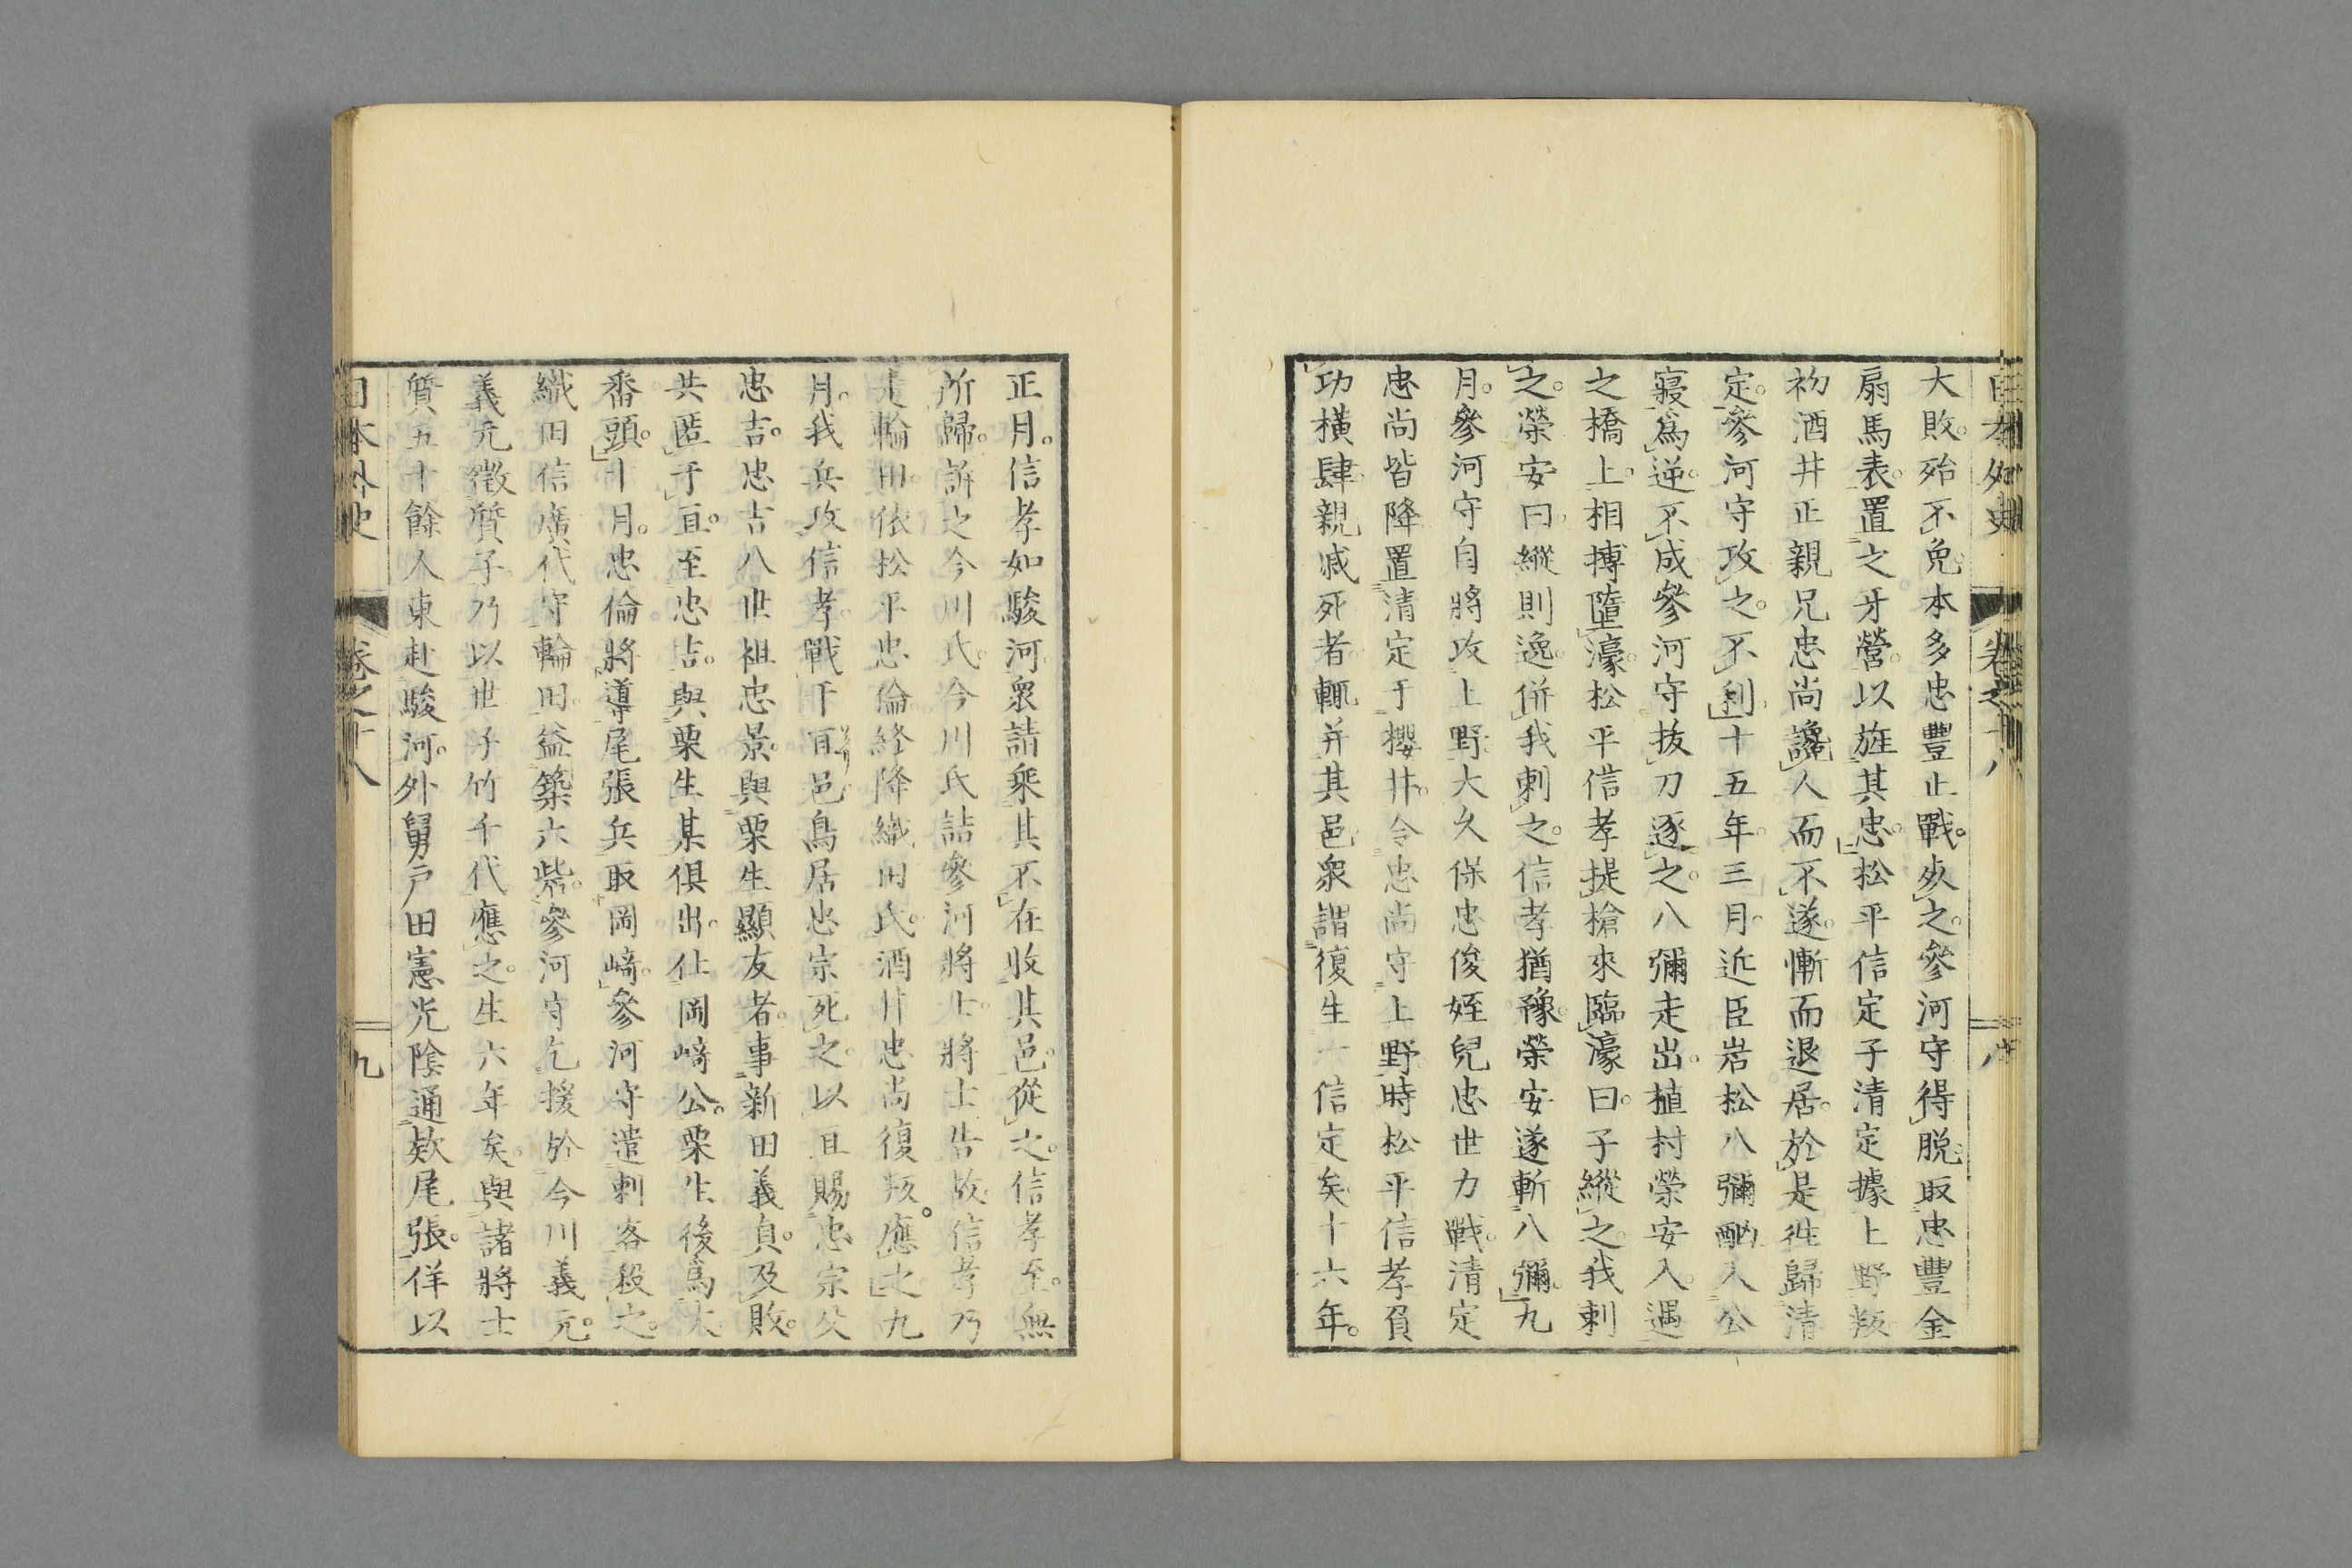 日本外史 卷之十八 八
大敗。殆不免。本多忠豐止戰。死之。參河守得脫。取忠豐金
扇馬表。置之牙營。以旌其忠。松平信定子清定據上野叛。
初酒井正親兄忠尚讒人而不遂。慚而退居。於是徃歸清
定。參河守攻之。不利。十五年三月。近臣岩松八彌酗。入公
寢爲逆。不成。參河守拔刀逐之。八彌走出。植村榮安入。遇
之橋上。相搏墮濠。松平信孝提槍來臨濠曰。子縱之。我刺
之。榮安曰。縱則逸。併我刺之。信孝猶豫。榮安遂斬八彌。九
月。參河守自將攻上野。大久保忠俊姪兒忠世力戰。清定
忠尚皆降。置清定于櫻井。令忠尚守上野。時松平信孝負
功橫肆。親戚死者。輒并其邑。衆謂復生一信定矣。十六年。
正月。信孝如駿河。衆請乘其不在收其邑。從之。信孝至。無
所歸。訴之今川氏。今川氏詰參河將士。將士告故。信孝乃
走輪田。依松平忠倫。終降織田氏。酒井忠尚復叛應之。九
月。我兵攻信孝。戰于亘邑。鳥居忠宗死之。以亘賜忠宗父
忠吉。忠吉八世祖忠景。與栗生顯友者。事新田義貞。及敗。
共匿于亘。至忠吉。與栗生某俱出。仕岡崎公。栗生後爲大
番頭。十月。忠倫將導尾張兵取岡崎。參河守遣刺客殺之。
織田信廣代守輪田。益築六砦。參河守乞援於今川義元。
義元徵質子。乃以世子竹千代應之。生六年矣。與諸將士
質五十餘人東赴駿河。外舅戶田憲光陰通款尾張。佯以
日本外史 卷之十八 九